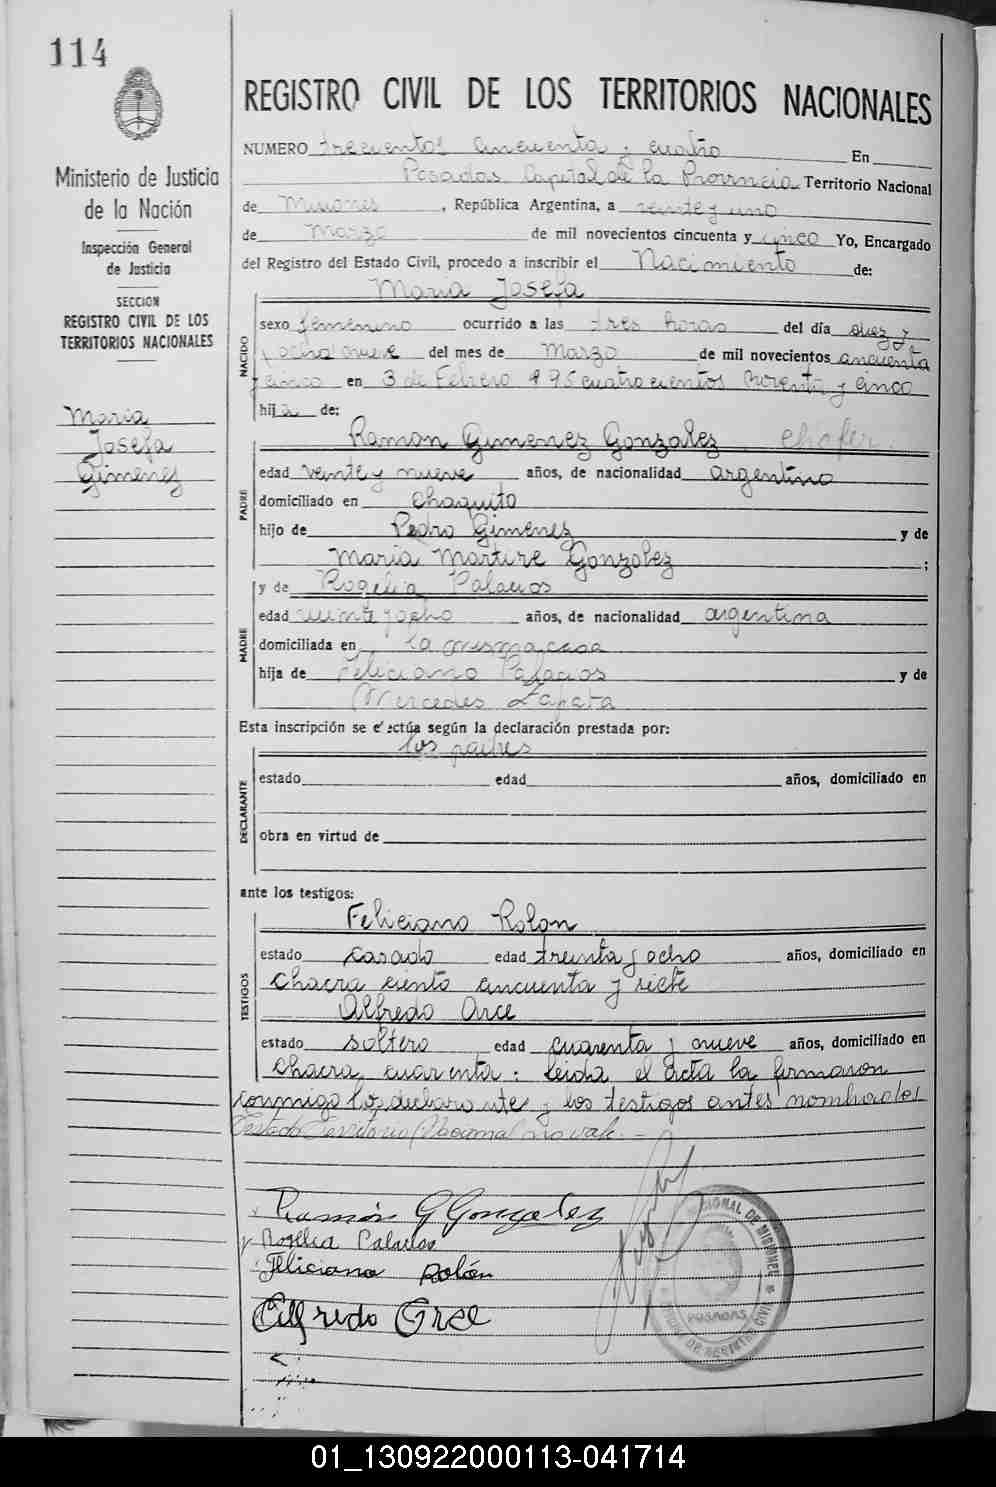 114
REGISTRO CIVIL DE LOS TERRITORIOS NACIONALES
Ministerio de Justicia
de la Nación
Inspección General
de Justicia
SECCION
REGISTRO CIVIL DE LOS
TERRITORIOS NACIONALES
Maria
Josefa
Gimenez
NUMERO trecientos cincuenta y cuatro En
Posadas Capital de la Provincia Territorio Nacional
de Misiones, República Argentina, a veinte y uno
de Marzo de mil novecientos cincuenta y cinco Yo, Encargado
del Registro del Estado Civil, procedo a inscribir el Nacimiento de:
Maria Josefa
NACIDO
sexo femenino ocurrido a las tres horas del día diez y
nueve del mes de Marzo de mil novecientos cincuenta
y cinco en 3 de Febrero 1895 cuatrocientos noventa y cinco
hija de:
Ramon Gimenez Gonzalez chofer.
PADRE
edad veinte y nueve años, de nacionalidad argentino
domiciliado en chaquito
hijo de Pedro Gimenez y de
Maria Martire Gonzalez;
y de Rogelia Palacios
MADRE
edad veinte y ocho años, de nacionalidad argentina
domiciliada en la misma casa
hija de Feliciano Palacios y de
Mercedes Zapata
Esta inscripción se efectúa según la declaración prestada por:
los padres
DECLARANTE
estado edad años, domiciliado en
obra en virtud de
ante los testigos:
Feliciano Rolon
TESTIGOS
estado casado edad treinta y ocho años, domiciliado en
chacra ciento cincuenta y siete
Alfredo Arce
estado soltero edad cuarenta y nueve años, domiciliado en
chacra cuarenta: leida el acta la firmaron
conmigo los declarantes y los testigos antes nombrados
Testado Territorio Nacional no vale.–
Ramón G Gonzalez
Rogelia Palacios
Feliciano Rolón
Alfredo Arce
POSADAS
01_130922000113-041714